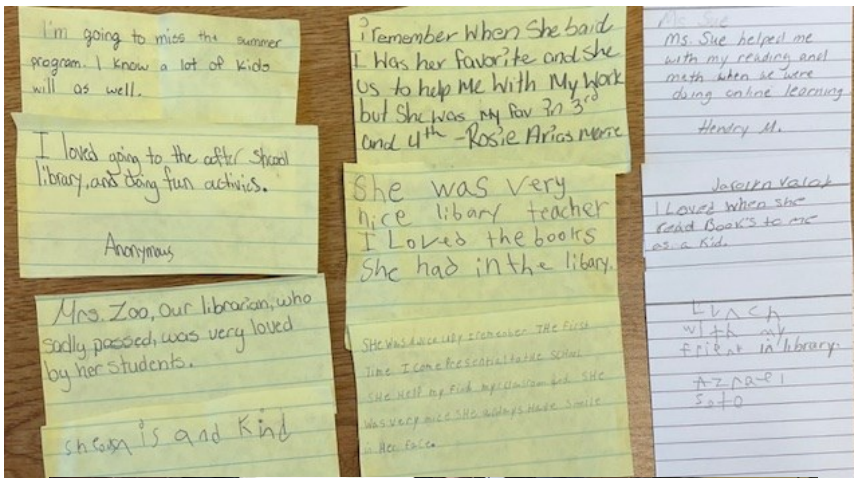 I'm going to miss the summer
program. I know a lot of kids
will as well.
I loved going to the after shcool
library, and doing fun activies.
Anonymous
Mrs. Zoo, our librarian, who
sadly passed, was very loved
by her students.
is and kind
i remember when she said
I was her favorite and she
us to help me with My Work
but she was my fav in 3rd
and 4th -Rosie Arias
She was very
nice libary teacher
I Loved the books
She had in the libary.
SHe was I remember THe first
Time I come Presential to the school
SHe Help my Find my classroom SHe
was very nice SHe always Have smile
in Her face.
Ms. Sue
Ms. Sue helped me
with my reading and
math when we were
doing online learning
Hendry M.
I Loved when she
read Book's to me
as a kid.
Lunch
with my
friend in library.
Azrael
Soto